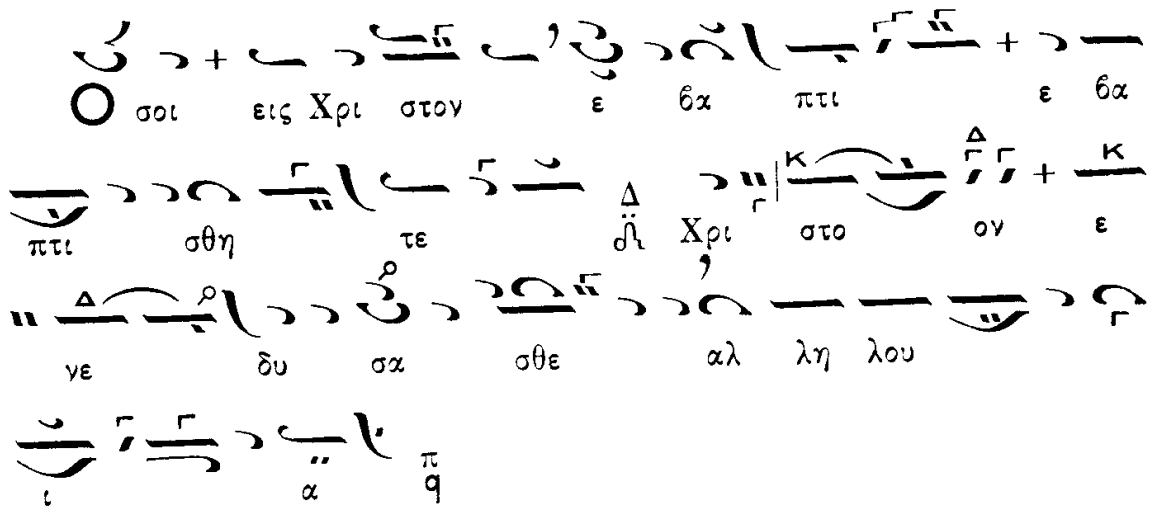 Ο σοι εις Χρι στον ε βα πτι ε βα
πτι σθη τε Δ Χρι στο ον ε
νε δυ σα σθε αλ λη λου
ι α π q